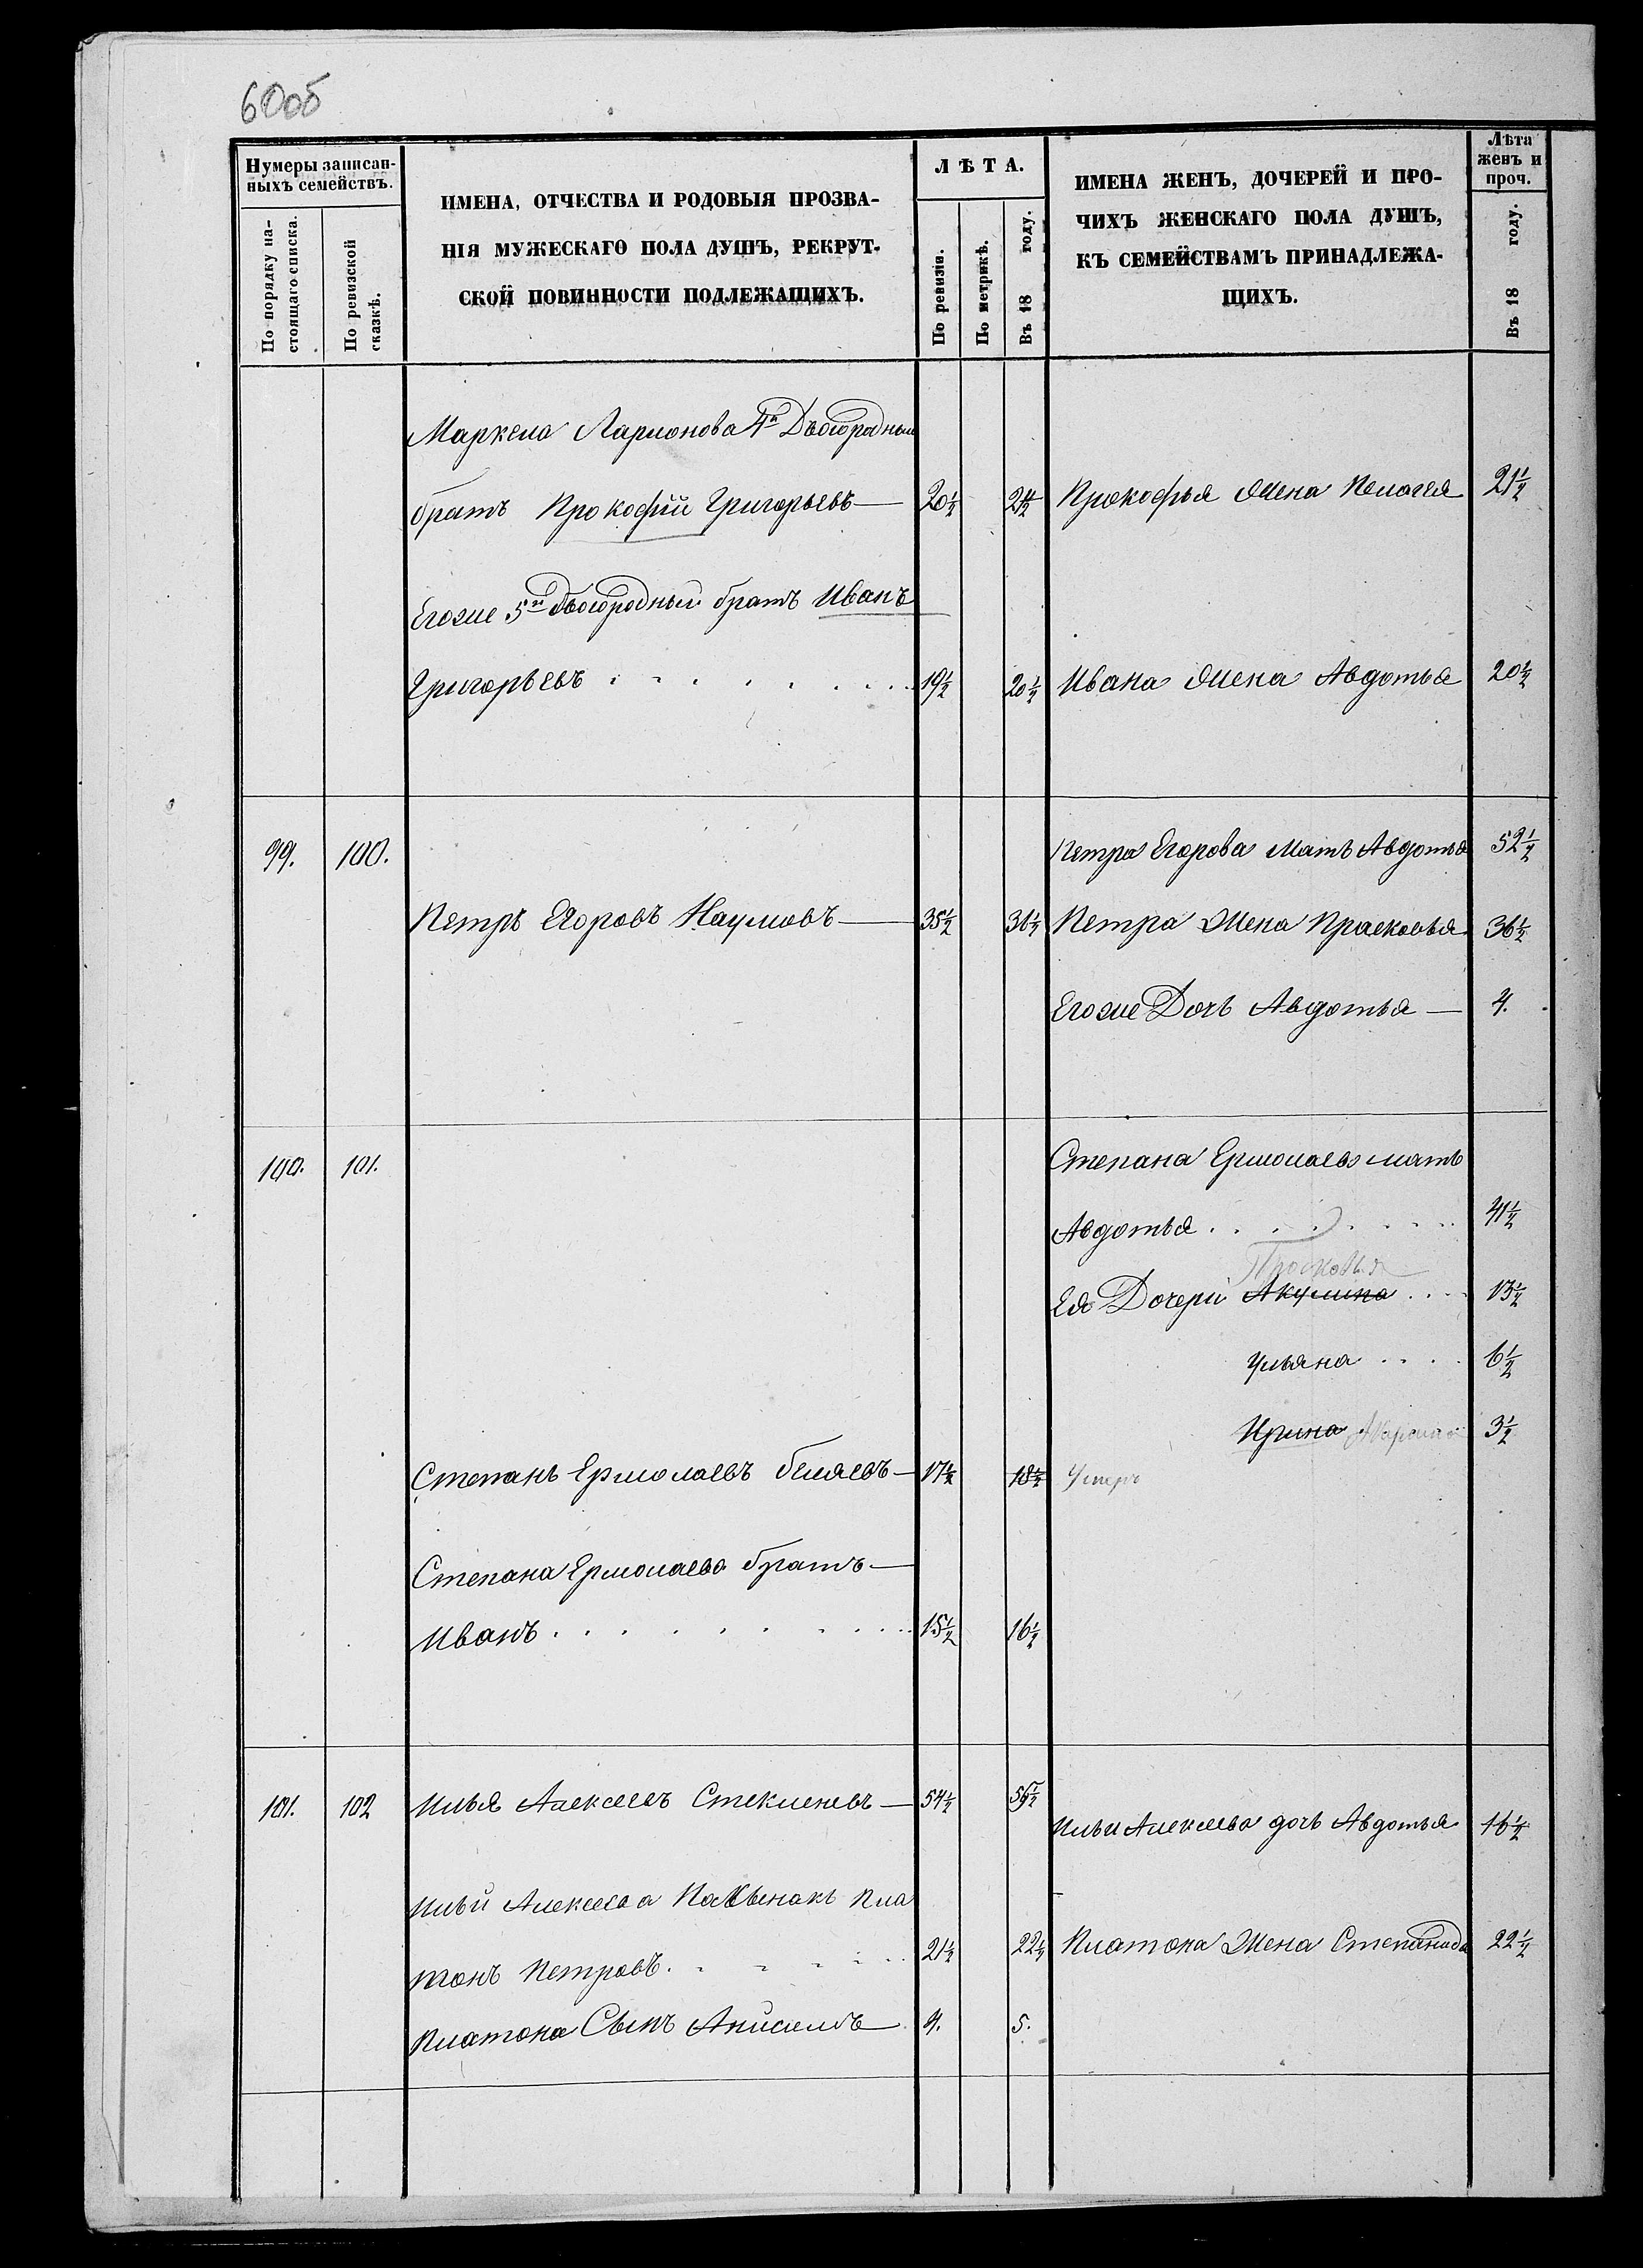 60об
Нумеры записан-
ныхъ семействъ.
По порядку на-
стоящаго списка.
По ревизской
сказкѣ.
ИМЕНА, ОТЧЕСТВА И РОДОВЫЯ ПРОЗВА-
НІЯ МУЖЕСКАГО ПОЛА ДУШЪ, РЕКРУТ-
СКОЙ ПОВИННОСТИ ПОДЛЕЖАЩИХЪ.
ЛѢТА.
По ревизіи.
По метрикѣ.
Въ 18 году.
ИМЕНА ЖЕНЪ, ДОЧЕРЕЙ И ПРО-
ЧИХЪ ЖЕНСКАГО ПОЛА ДУШЪ,
КЪ СЕМЕЙСТВАМЪ ПРИНАДЛЕЖА-
ЩИХЪ.
Лѣта
женъ и
проч.
Въ 18 году.
Маркела Ларионова 4й Двоюродный
братъ Прокофій Григорьевъ 20½ 21½ Прокофья Жена Пелагея 21½
Егоже 5й двоюродный братъ Иванъ
Григорьевъ 19½ 20½ Ивана Жена Авдотья 20½
99. 100. Петра Егорова Мать Авдотья 52½
Петръ Егоровъ Наумовъ 35½ 36½ Петра Жена Прасковья 36½
Егоже Дочь Авдотья 4.
100. 101. Степана Ермолаева мать
Авдотья 41½
Прасковья
Ея Дочери Акулина 13½
Ульяна 6½
Ирина Марина 3½
Степанъ Ермолаевъ Беляевъ 17½ 18½ Умеръ
Степана Ермолаева братъ
Иванъ 15½ 16½
101. 102 Илья Алексеевъ Стекленевъ 54½ 55½
Ильи Алексеева дочь Авдотья 16½
Ильи Алексеева Пла
тонъ Петровъ 21½ 22½ Платона Жена Степанида 22½
Платона Сынъ Анисимъ 4. 5.